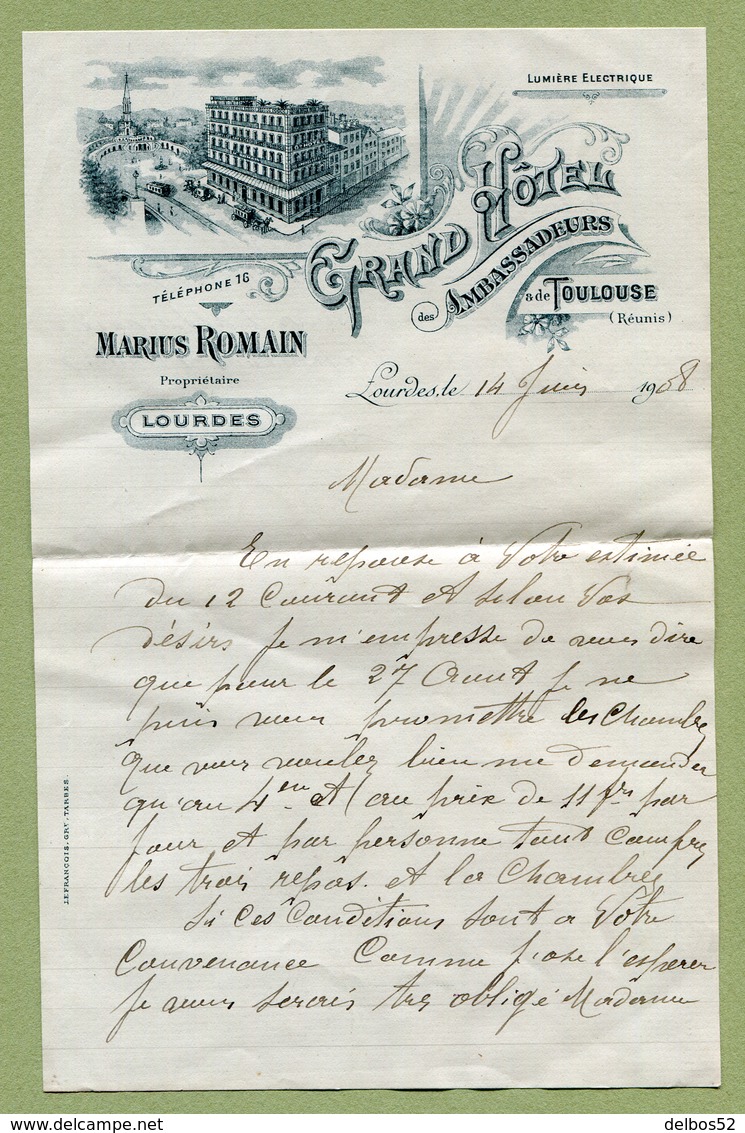 LUMIÈRE ELECTRIQUE
GRAND HÔTEL
des AMBASSADEURS
& de TOULOUSE
(Réunis)
TÉLÉPHONE 16
MARIUS ROMAIN
Propriétaire
LOURDES
Lourdes, le 14 Juin 1908
Madame
En reponse à Votre estimée
du 12 Courant et selon Vos
désirs Je m'empresse de vous dire
que pour le 27 Aout Je ne
puis vous promettre les Chambres
que vous voulez bien me demander
qu'au 4em et (au prix de 11 frs par
Jour et par personne tout Compris
les trois repas. et la Chambre)
Si Ces Conditions sont a Votre
Convenance Comme J'ose l'esperer
Je vous serais tres obligé Madame
LEFRANÇOIS, GRV, TARBES.
delbos52